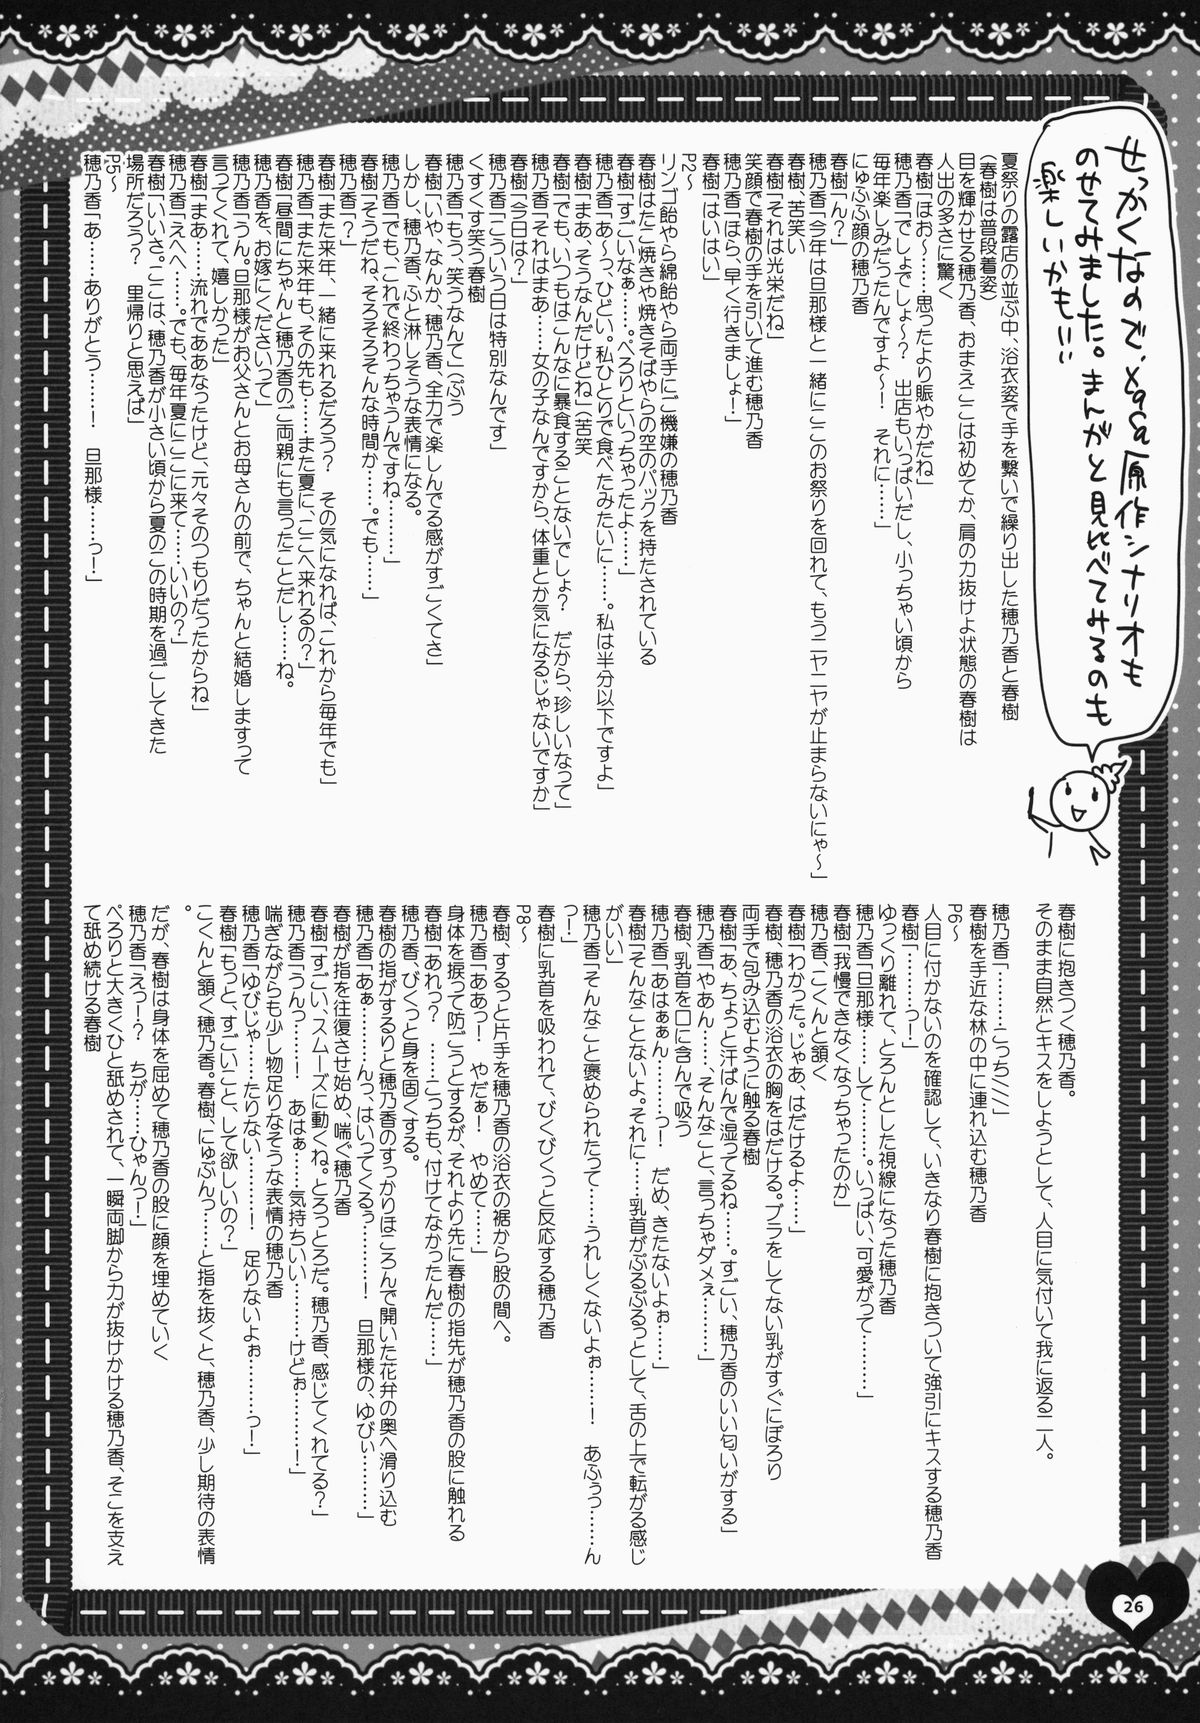 せっかくなので、xaca原作シナリオも
のせてみました。まんがと見比べてみるのも
楽しいかも!!!
夏祭りの露店の並ぶ中、浴衣姿で手を繋いで繰り出した穂乃香と春樹
(春樹は普段着姿)
目を輝かせる穂乃香、おまえここは初めてか、肩の力抜けよ状態の春樹は
人出の多さに驚く
春樹「はお~……思ったより賑やかだね」
穂乃香「でしょでしょ~? 出店もいっぱいだし、小っちゃい頃から
毎年楽しみだったんですよ~! それに……」
にゅふふ顔の穂乃香
春樹「ん?」
穂乃香「今年は旦那様と一緒にここのお祭りを回れて、もうニヤニヤが止まらないにゃ~」
春樹、苦笑い
春樹「それは光栄だね」
笑顔で春樹の手を引いて進む穂乃香
穂乃香「ほら、早く行きましょ!」
春樹「はいはい」
P2~
リンゴ飴やら綿飴やら両手にご機嫌の穂乃香
春樹はたこ焼きや焼きそばやらの空のパックを持たされている
春樹「すごいなぁ……。ぺろりといっちゃったよ……」
穂乃香「あ~っ、ひどい。私ひとりで食べたみたいに……。私は半分以下ですよ」
春樹「まあ、そうなんだけどね」(苦笑
春樹「でも、いつもはこんなに暴食することないでしょ? だから、珍しいなって」
穂乃香「それはまあ……女の子なんですから、体重とか気になるじゃないですか」
春樹「今日は?」
穂乃香「こういう日は特別なんです」
くすくす笑う春樹
穂乃香「もう、笑うなんて」(ぷう
春樹「いや、なんか、穂乃香、全力で楽しんでる感がすごくてさ」
しかし、穂乃香、ふと淋しそうな表情になる。
穂乃香「でも、これで終わっちゃうんですね……」
春樹「そうだね、そろそろそんな時間か……。でも……」
穂乃香「?」
春樹「また来年、一緒に来れるだろう? その気になれば、これから毎年でも」
穂乃香「また来年も、その先も……また夏に、ここへ来れるの?」
春樹「昼間にちゃんと穂乃香のご両親にも言ったことだし……ね。
穂乃香を、お嫁にくださいって」
穂乃香「うん。旦那様がお父さんとお母さんの前で、ちゃんと結婚しますって
言ってくれて、嬉しかった」
春樹「まあ……流れでああなったけど、元々そのつもりだったからね」
穂乃香「えへへ……。でも、毎年夏にここに来て……いいの?」
春樹「いいさ。ここは、穂乃香が小さい頃から夏のこの時期を過ごしてきた
場所だろう? 里帰りと思えば」
P5~
穂乃香「あ……ありがとう……! 旦那様……っ!」
春樹に抱きつく穂乃香。
そのまま自然とキスをしようとして、人目に気付いて我に返る二人。
穂乃香「………こっち////」
春樹を手近な林の中に連れ込む穂乃香
P6~
人目に付かないのを確認して、いきなり春樹に抱きついて強引にキスする穂乃香
春樹「………っ!」
ゆっくり離れて、とろんとした視線になった穂乃香
穂乃香「旦那様……して………。いっぱい、可愛がって………」
春樹「我慢できなくなっちゃったのか」
穂乃香、こくんと頷く
春樹「わかった。じゃあ、はだけるよ……」
春樹、穂乃香の浴衣の胸をはだける。ブラをしてない乳がすぐにぽろり
両手で包み込むように触る春樹
春樹「あ、ちょっと汗ばんで湿ってるね……。すごい、穂乃香のいい匂いがする」
穂乃香「やあん……、そんなこと、言っちゃダメぇ………」
春樹、乳首を口に含んで吸う
穂乃香「あはぁぁん………っ! だめ、きたないよぉ……」
春樹「そんなことないよ。それに……乳首がぷるぷるっとして、舌の上で転がる感じ
がいい」
穂乃香「そんなこと褒められたって……うれしくないよぉ……! あふぅっ……ん
っ!」
春樹に乳首を吸われて、びくびくっと反応する穂乃香
P8~
春樹、するっと片手を穂乃香の浴衣の裾から股の間へ。
穂乃香「ああっ! やだぁ! やめて……」
身体を捩って防ごうとするが、それより先に春樹の指先が穂乃香の股に触れる
春樹「あれっ? ……こっちも、付けてなかったんだ……」
穂乃香、びくっと身を固くする。
春樹の指がするりと穂乃香のすっかりほころんで開いた花弁の奥へ滑り込む
穂乃香「あぁ………んっ、はいってくるっ………! 旦那様の、ゆびぃ………」
春樹が指を往復させ始め、喘ぐ穂乃香
春樹「すごい、スムーズに動くね。とろっとろだ。穂乃香、感じてくれてる?」
穂乃香「うんっ……! あはぁ……気持ちいい………けどぉ………!」
喘ぎながらも少し物足りなそうな表情の穂乃香
穂乃香「ゆびじゃ……たりない………! 足りないよぉ………っ!」
春樹「もっと、すごいこと、して欲しいの?」
こくんと頷く穂乃香。春樹、にゅぷんっ……と指を抜くと、穂乃香、少し期待の表情
。
だが、春樹は身体を屈めて穂乃香の股に顔を埋めていく
穂乃香「えっ!? ちが……ひゃんっ!」
ぺろりと大きくひと舐めされて、一瞬両脚から力が抜けかける穂乃香、そこを支え
て舐め続ける春樹
26